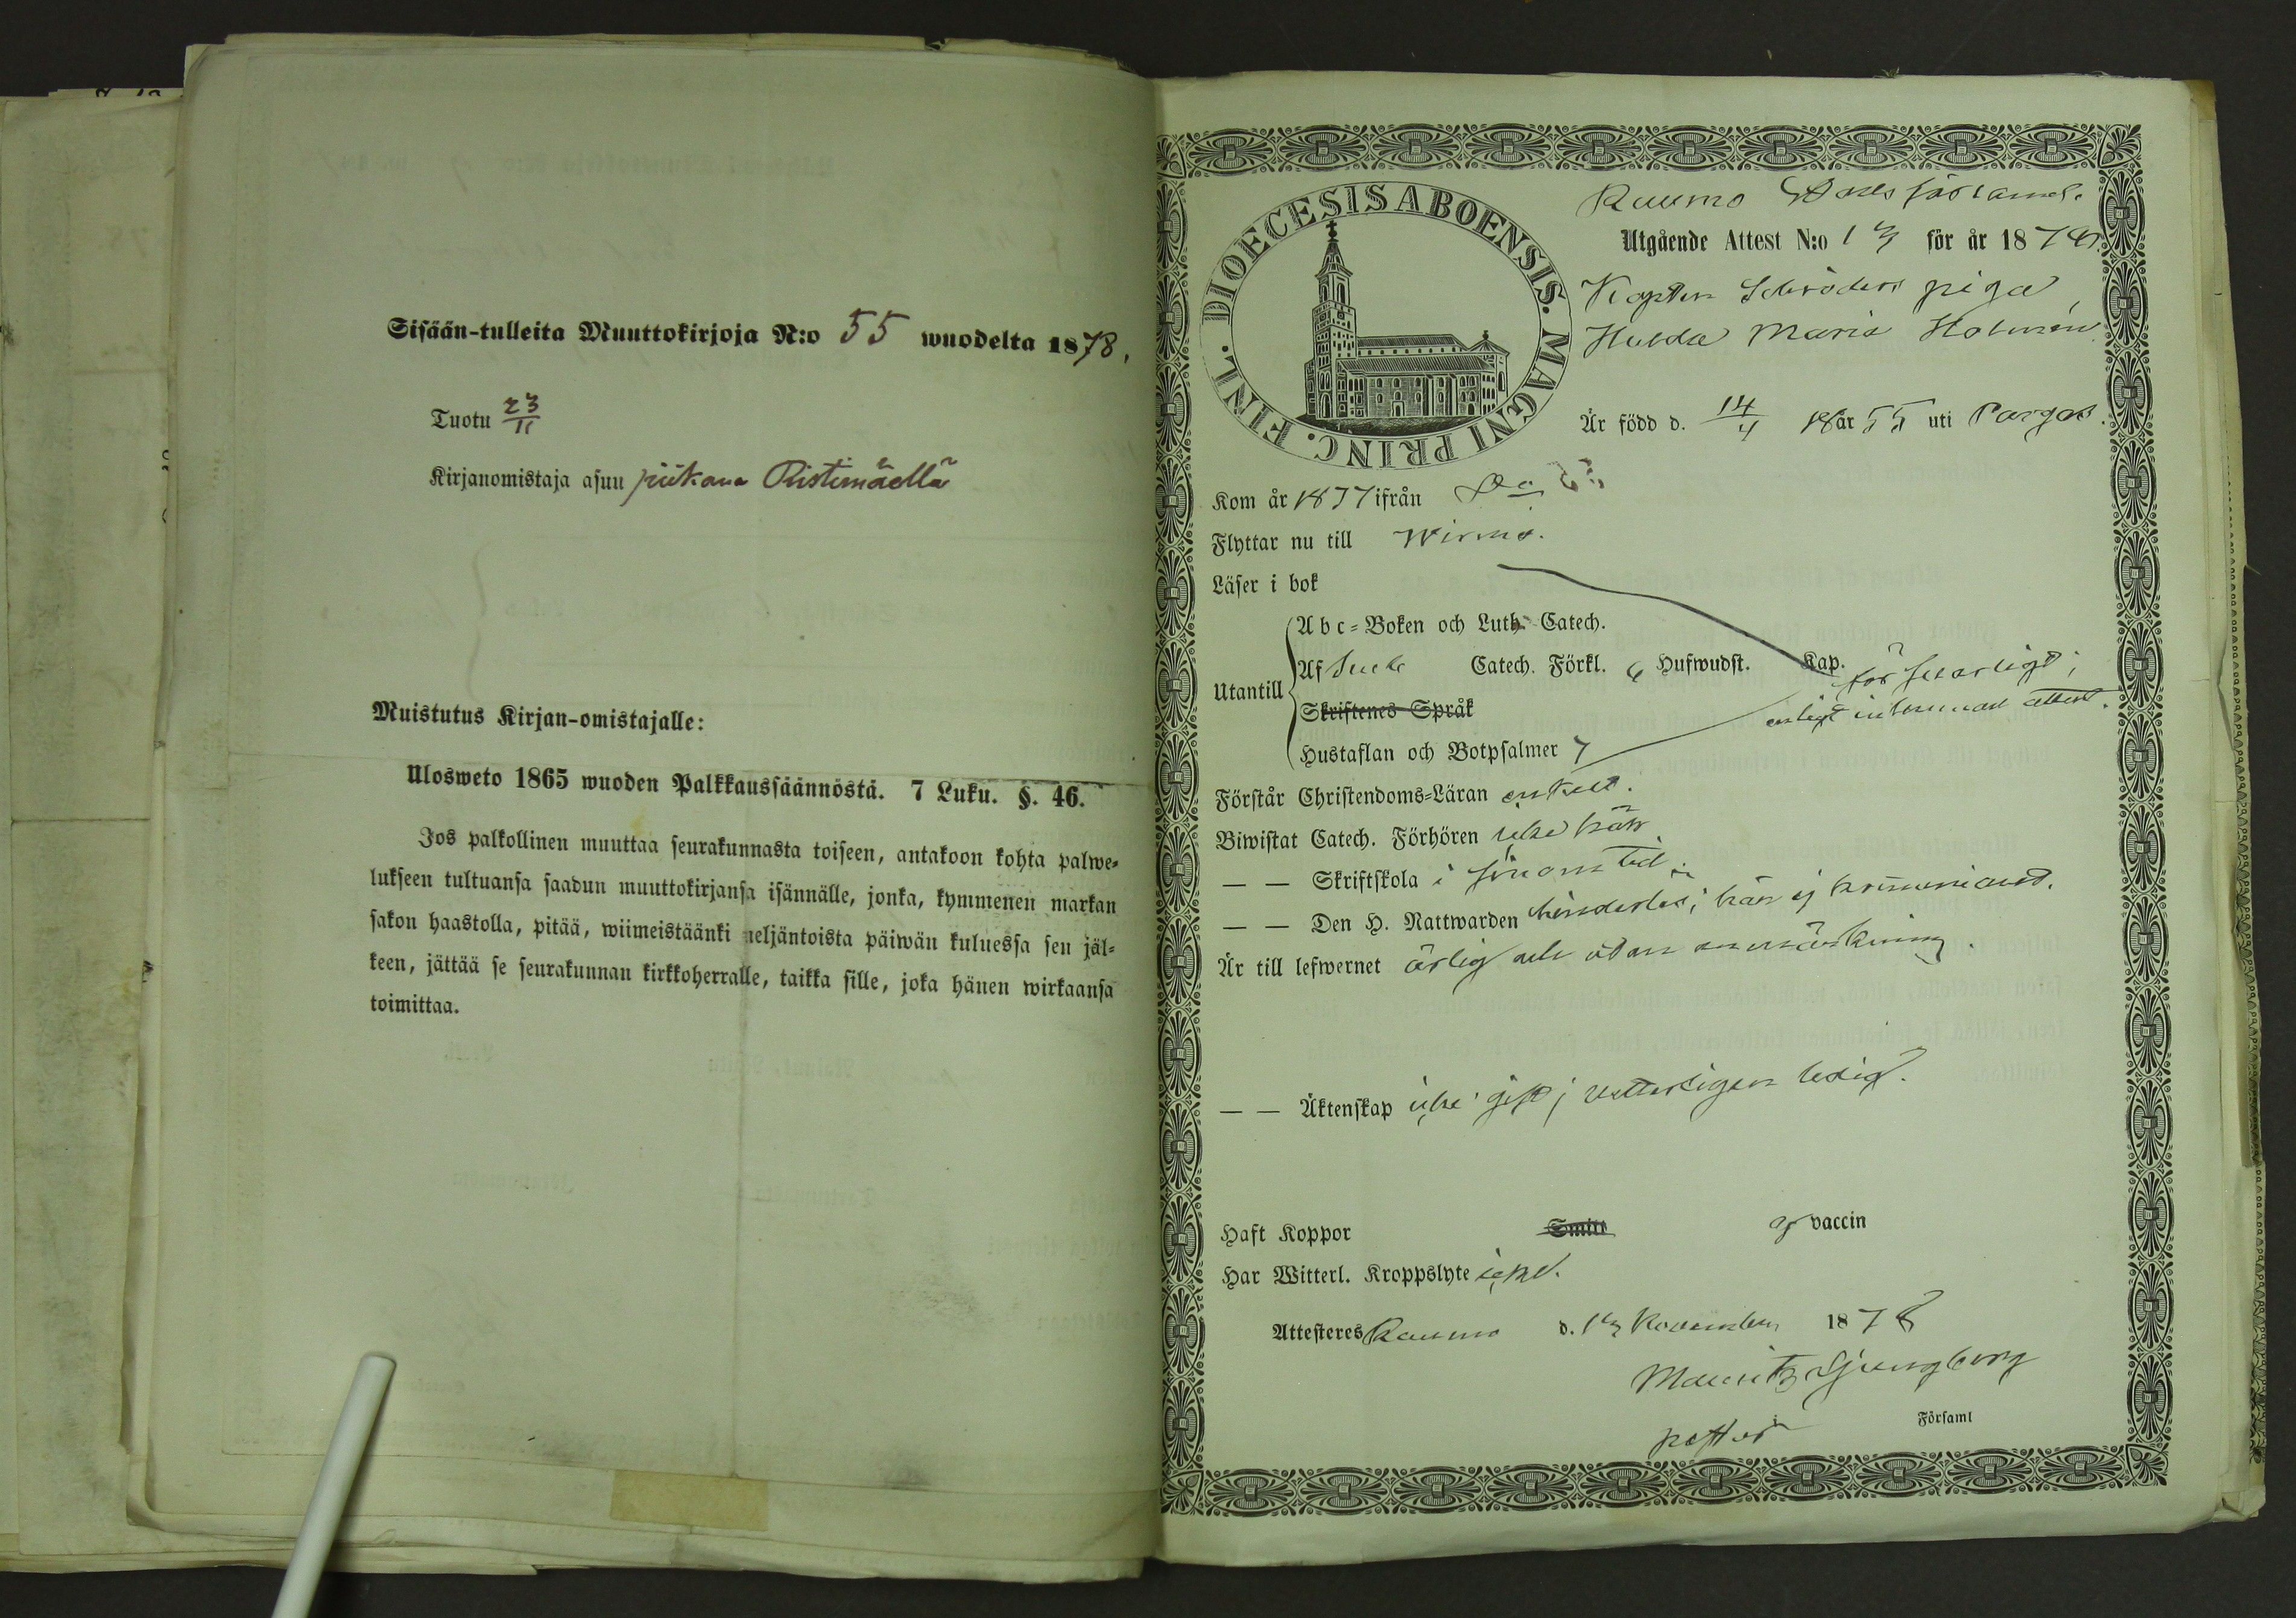 Sisään-tulleita Muuttokirjoja N:o 55 wuodelta 1878.
Tuotu 23/11
Kirjanomistaja asuu piikana Ristimäellä
Muistutus Kirjan-omistajalle:
Ulosweto 1865 wuoden Palkkaussäännöstä. 7 Luku. §. 46.
Jos palkollinen muuttaa seurakunnasta toiseen, antakoon kohta palwe-
lukseen tultuansa saadun muuttokirjansa isännälle, jonka, kymmenen markan
sakon haastolla, pitää, wiimeistäänki neljäntoista päiwän kuluessa sen jäl-
keen, jättää se seurakunnan kirkkoherralle, taikka sille, joka hänen wirkaansa
toimittaa.
DIOECESIS ABOENSIS. MAGNI PRINC. FINL.
Raumo Stads församl.
Utgående Attest N:o 13 för år 1878.
Kapten Schröders piga,
Hulda Maria Holmén
Är född d. 14/4 18 år 55 uti Pargas.
Kom år 1877 ifrån
Flyttar nu till Wirmo.
Läser i bok
Utantill
Abc-Boken och Luth. Catech.
Af Catech. Förkl. 6 Hufwudst. Kap.
försvarligt;
Skriftenes Språk
enligt inkommet attest.
Hustaflan och Botpsalmer 7
Förstår Christendoms-Läran enkelt.
Biwistat Catech. Förhören icke här.
— — Skriftskola i sinom tid.
— — Den H. Nattwarden hinderlös; här ej kommunicerat.
Är till lefwernet ärlig och utan anmärkning.
— — Äktenskap icke gift; vetterligen ledig.
Haft Koppor Smitt af vaccin
Har Witterl. Kroppslyte icke.
Attesteres Raumo d. 13 November 1878
Mauritz Ljungberg
pastor Församl